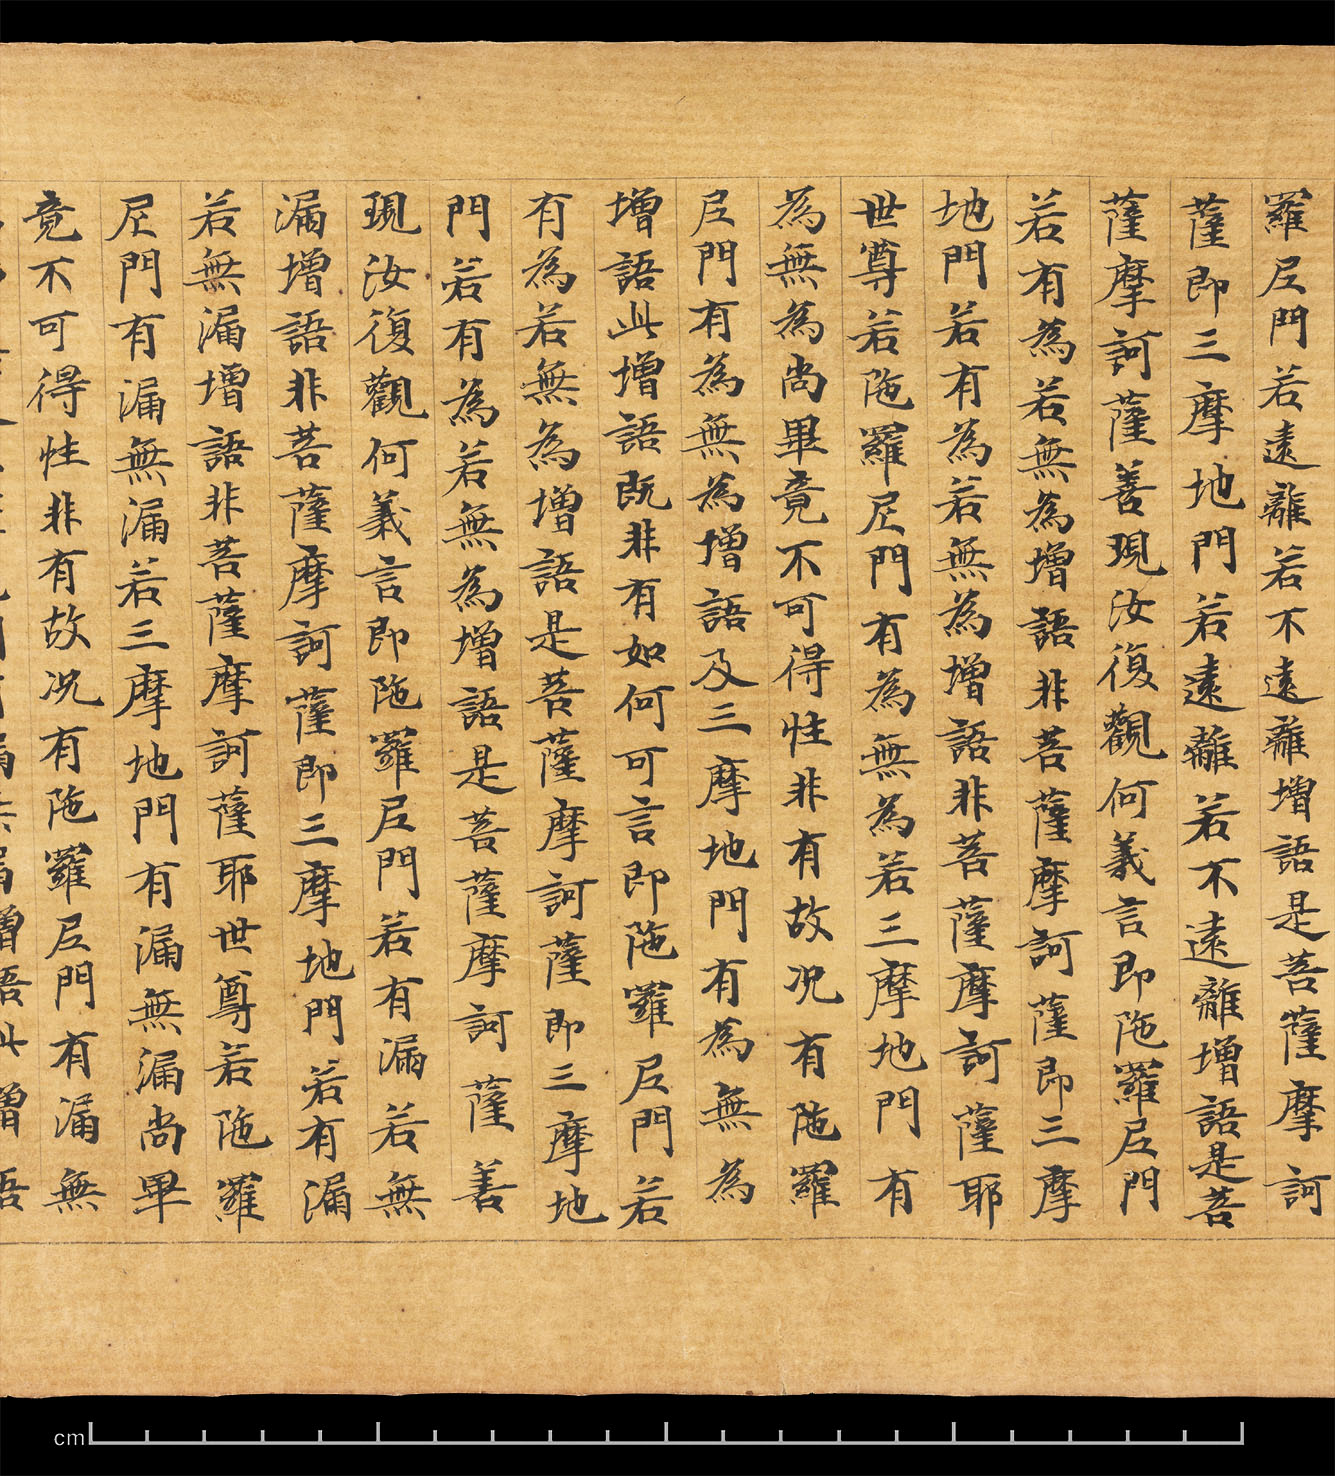 羅尼門若遠離若不遠離增語是菩薩摩訶
薩即三摩地門若遠離若不遠離增語是菩
薩摩訶薩善現汝復觀何義言即陁羅尼門
若有為若無為增語非菩薩摩訶薩即三摩
地門若有為若無為增語非菩薩摩訶薩耶
世尊若陁羅尼門有為無為若三摩地門有
為無為尚畢竟不可得性非有故况有陁羅
尼門有為無為增語及三摩地門有為無為
增語此增語既非有如何可言即陁羅尼門若
有為若無為增語是菩薩摩訶薩即三摩地
門若有為若無為增語是菩薩摩訶薩善
現汝復觀何義言即陁羅尼門若有漏若無
漏增語非菩薩摩訶薩即三摩地門若有漏
若無漏增語非菩薩摩訶薩耶世尊若陁羅
尼門有漏無漏若三摩地門有漏無漏尚畢
竟不可得性非有故况有陁羅尼門有漏無
增語此增語